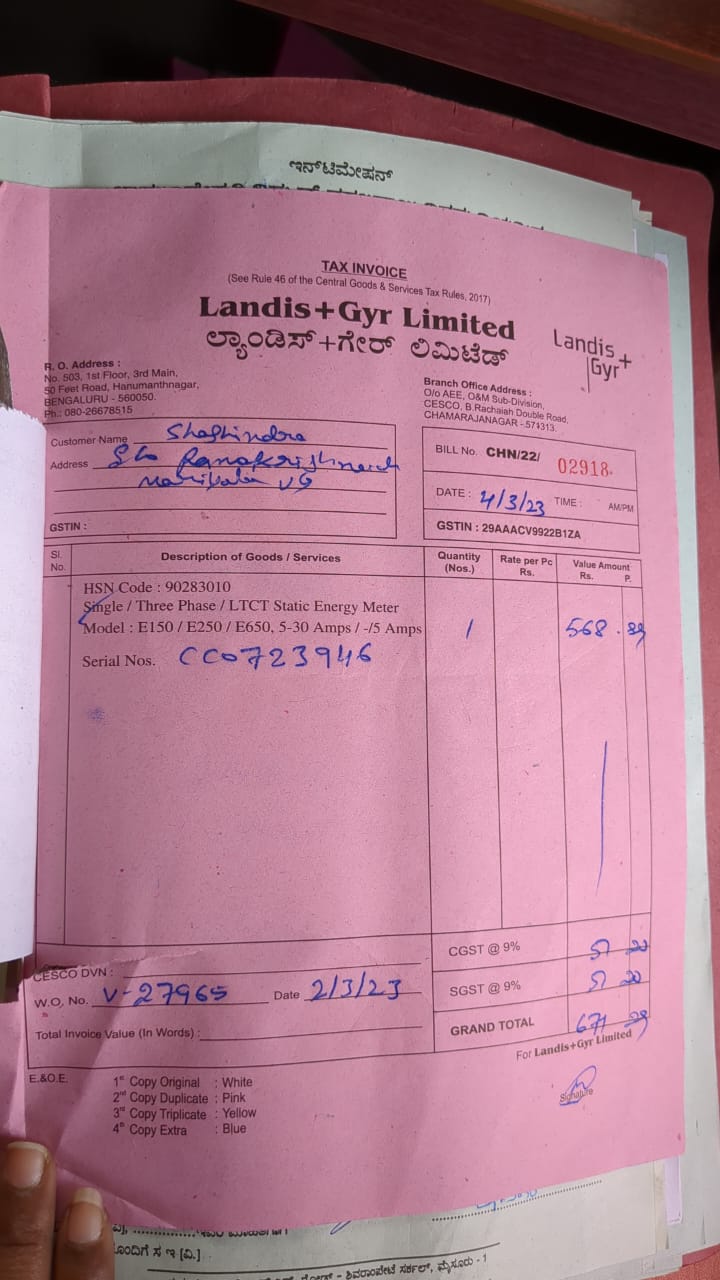 ಇನ್‌ಟಿಮೇಷನ್
TAX INVOICE
(See Rule 46 of the Central Goods & Services Tax Rules, 2017)
Landis+Gyr Limited
ಲ್ಯಾಂಡಿಸ್+ಗೇರ್ ಲಿಮಿಟೆಡ್
Landis+
Gyr
R. O. Address :
No. 503, 1st Floor, 3rd Main,
50 Feet Road, Hanumanthnagar,
BENGALURU - 560050.
Ph.: 080-26678515
Branch Office Address :
O/o AEE, O&M Sub-Division,
CESCO, B.Rachaiah Double Road,
CHAMARAJANAGAR - 571313.
Customer Name
Address S/o
GSTIN :
BILL No. CHN/22/ 02918
DATE : 4/3/23 TIME : AM/PM
GSTIN : 29AAACV9922B1ZA
Sl. No. Description of Goods / Services Quantity (Nos.) Rate per Pc Rs. Value Amount Rs. P.
HSN Code : 90283010
Single / Three Phase / LTCT Static Energy Meter
Model : E150 / E250 / E650, 5-30 Amps / -/5 Amps 1 568
Serial Nos. CC0723946
CGST @ 9% 51
SGST @ 9% 51
GRAND TOTAL 671
CESCO DVN :
W.O, No. V-27965 Date 2/3/23
Total Invoice Value (In Words) :
For Landis+Gyr Limited
Signature
E.&O.E.
1st Copy Original : White
2nd Copy Duplicate : Pink
3rd Copy Triplicate : Yellow
4th Copy Extra : Blue
ಸ ಇ [ವಿ.]
ಶಿವರಾಂಪೇಟೆ ಸರ್ಕಲ್, ಮೈಸೂರು - 1